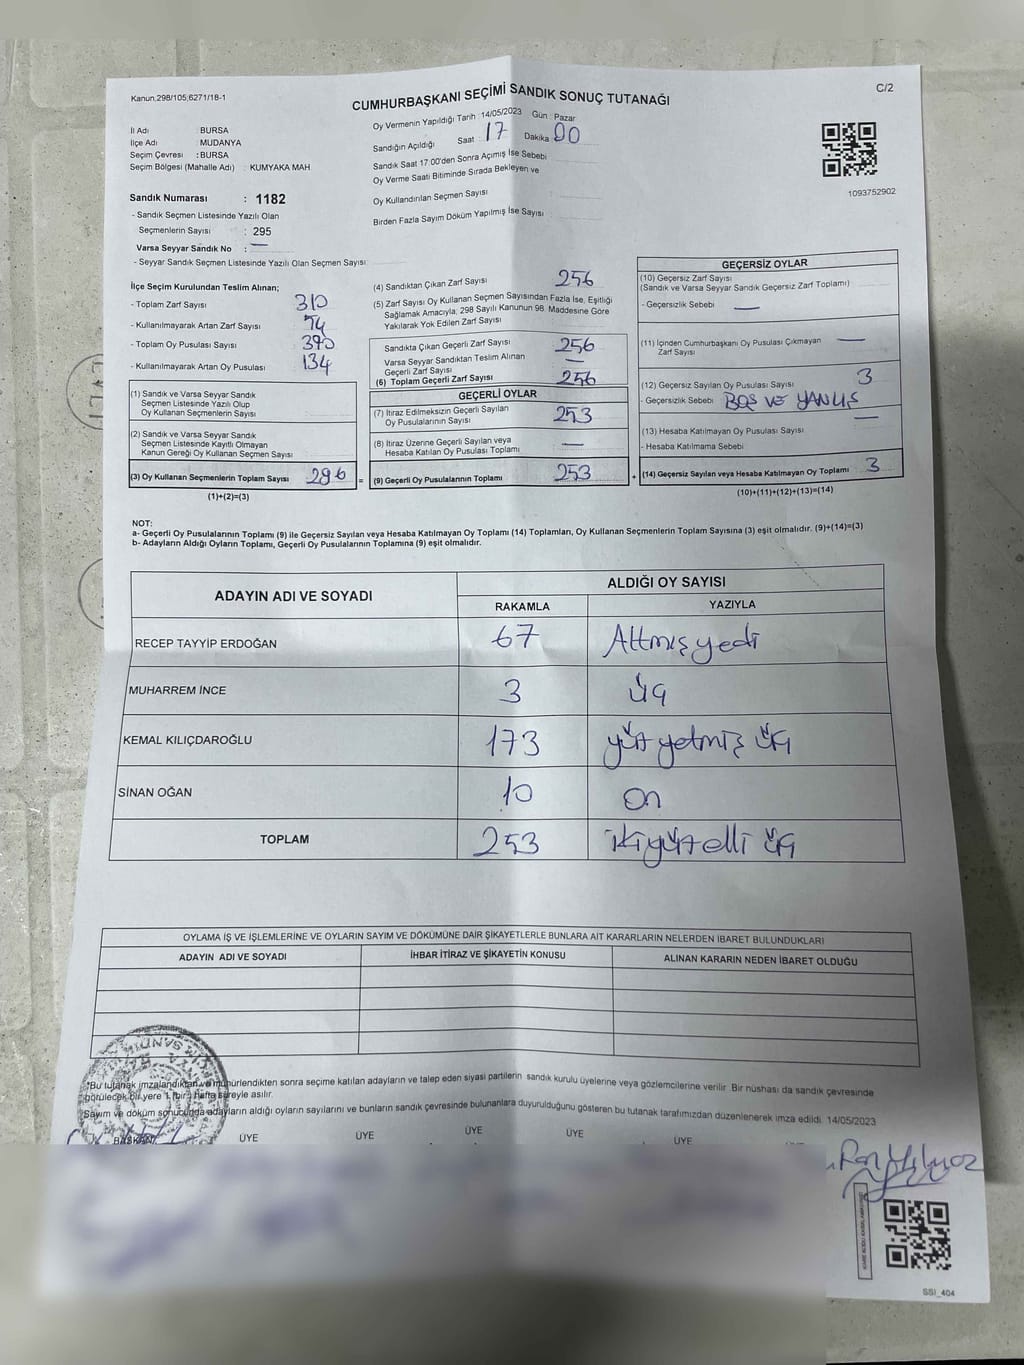 Kanun,298/105,6271/18-1
C/2
CUMHURBAŞKANI SEÇİMİ SANDIK SONUÇ TUTANAĞI
Oy Vermenin Yapıldığı Tarih : 14/05/2023 Gün : Pazar
Sandığın Açıldığı Saat : 17 Dakika 00
Sandık Saat 17:00'den Sonra Açımış İse Sebebi
Oy Verme Saati Bitiminde Sırada Bekleyen ve
Oy Kullandırılan Seçmen Sayısı
Birden Fazla Sayım Döküm Yapılmış İse Sayısı
İl Adı BURSA
İlçe Adı : MUDANYA
Seçim Çevresi : BURSA
Seçim Bölgesi (Mahalle Adı) : KUMYAKA MAH
1093752902
Sandık Numarası : 1182
- Sandık Seçmen Listesinde Yazılı Olan
Seçmenlerin Sayısı : 295
Varsa Seyyar Sandık No : —
- Seyyar Sandık Seçmen Listesinde Yazılı Olan Seçmen Sayısı
İlçe Seçim Kurulundan Teslim Alınan;
- Toplam Zarf Sayısı 310
- Kullanılmayarak Artan Zarf Sayısı 54
- Toplam Oy Pusulası Sayısı 390
- Kullanılmayarak Artan Oy Pusulası 134
(1) Sandık ve Varsa Seyyar Sandık
Seçmen Listesinde Yazılı Olup
Oy Kullanan Seçmenlerin Sayısı
(2) Sandık ve Varsa Seyyar Sandık
Seçmen Listesinde Kayıtlı Olmayan
Kanun Gereği Oy Kullanan Seçmen Sayısı
(3) Oy Kullanan Seçmenlerin Toplam Sayısı 256 =
(1)+(2)=(3)
(4) Sandıktan Çıkan Zarf Sayısı 256
(5) Zarf Sayısı Oy Kullanan Seçmen Sayısından Fazla İse, Eşitliği
Sağlamak Amacıyla; 298 Sayılı Kanunun 98. Maddesine Göre
Yakılarak Yok Edilen Zarf Sayısı
Sandıkta Çıkan Geçerli Zarf Sayısı 256
Varsa Seyyar Sandıktan Teslim Alınan
Geçerli Zarf Sayısı —
(6) Toplam Geçerli Zarf Sayısı 256
GEÇERLİ OYLAR
(7) İtiraz Edilmeksizin Geçerli Sayılan
Oy Pusulalarının Sayısı 253
(8) İtiraz Üzerine Geçerli Sayılan veya
Hesaba Katılan Oy Pusulası Toplamı —
(9) Geçerli Oy Pusulalarının Toplamı 253 +
GEÇERSİZ OYLAR
(10) Geçersiz Zarf Sayısı
(Sandık ve Varsa Seyyar Sandık Geçersiz Zarf Toplamı)
- Geçersizlik Sebebi —
(11) İçinden Cumhurbaşkanı Oy Pusulası Çıkmayan
Zarf Sayısı —
(12) Geçersiz Sayılan Oy Pusulası Sayısı 3
- Geçersizlik Sebebi BOŞ VE YANLIŞ
(13) Hesaba Katılmayan Oy Pusulası Sayısı —
- Hesaba Katılmama Sebebi
(14) Geçersiz Sayılan veya Hesaba Katılmayan Oy Toplamı 3
(10)+(11)+(12)+(13)=(14)
NOT:
a- Geçerli Oy Pusulalarının Toplamı (9) ile Geçersiz Sayılan veya Hesaba Katılmayan Oy Toplamı (14) Toplamları, Oy Kullanan Seçmenlerin Toplam Sayısına (3) eşit olmalıdır. (9)+(14)=(3)
b- Adayların Aldığı Oyların Toplamı, Geçerli Oy Pusulalarının Toplamına (9) eşit olmalıdır.
ADAYIN ADI VE SOYADI
ALDIĞI OY SAYISI
RAKAMLA YAZIYLA
RECEP TAYYİP ERDOĞAN 67 Altmış yedi
MUHARREM İNCE 3 üç
KEMAL KILIÇDAROĞLU 173 yüz yetmiş üç
SİNAN OĞAN 10 On
TOPLAM 253 ikiyüz elli üç
OYLAMA İŞ VE İŞLEMLERİNE VE OYLARIN SAYIM VE DÖKÜMÜNE DAİR ŞİKAYETLERLE BUNLARA AİT KARARLARIN NELERDEN İBARET BULUNDUKLARI
ADAYIN ADI VE SOYADI İHBAR İTİRAZ VE ŞİKAYETİN KONUSU ALINAN KARARIN NEDEN İBARET OLDUĞU
*Bu tutanak imzalandıktan ve mühürlendikten sonra seçime katılan adayların ve talep eden siyasi partilerin sandık kurulu üyelerine veya gözlemcilerine verilir. Bir nüshası da sandık çevresinde
görülecek bir yere 1 (bir) hafta süreyle asılır.
Sayım ve döküm sonucunda adayların aldığı oyların sayılarını ve bunların sandık çevresinde bulunanlara duyurulduğunu gösteren bu tutanak tarafımızdan düzenlenerek imza edildi. 14/05/2023
BAŞKAN ÜYE ÜYE ÜYE ÜYE ÜYE
SSI_404